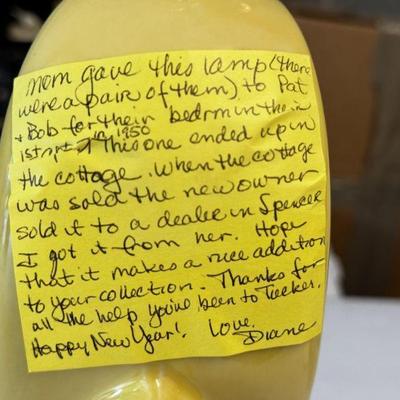 Mom gave this lamp (there
were a pair of them) to Pat
+ Bob for their bedrm in their
1st apt in 1950 This one ended up in
the cottage. When the cottage
was sold the new owner
sold it to a dealer in Spencer
I got it from her. Hope
that it makes a nice addition
to your collection. Thanks for
all the help you've been to Tucker.
Happy New Year! Love,
Diane